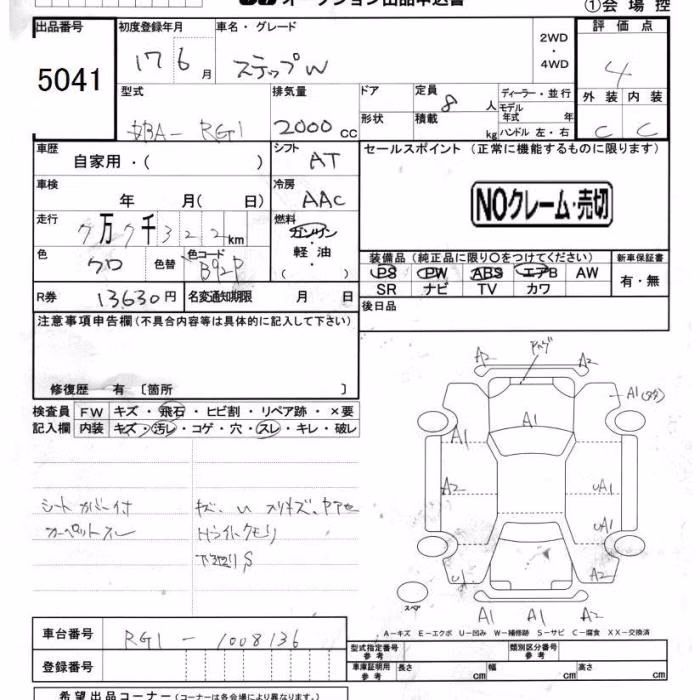 オークション出品申込書
①会場控
出品番号 初度登録年月 車名・グレード 2WD ・ 4WD 評価点
5041 17 6月 ステップW 4
型式 排気量 ドア 定員 8人 ディーラー・並行 外装 内装
DBA- RG1 2000cc 形状 積載 kg モデル年式 年 ハンドル 左・右 C C
車歴 自家用・( ) シフト AT セールスポイント (正常に機能するものに限ります)
車検 年 月( 日) 冷房 AAC
NOクレーム・売切
走行 7万7千322km 燃料 ガソリン・軽油・( )
色 クロ 色替 色コード B92P
装備品 (純正品に限り〇をつけてください) 新車保証書
PS PW ABS エアB AW 有・無
SR ナビ TV カワ
R券 13630円 名変通知期限 月 日 後日品
注意事項申告欄(不具合内容等は具体的に記入して下さい)
修復歴 有 〔箇所 〕
検査員 FW キズ・飛石・ヒビ割・リペア跡・×要
記入欄 内装 キズ・汚レ・コゲ・穴・スレ・キレ・破レ
シートカバー付
カーペットスレ
キズ、U スリキズ、
Hライトクモリ
下廻りS
A2 A2
A1
A1
A1
A2
UA1
UA1
U
A2
スペア
A1 A1 A2
A-キズ E-エクボ U-凹み W-補修跡 S-サビ C-腐食 XX-交換済
車台番号 RG1 - 1008136
型式指定番号 参考 類別区分番号 参考
登録番号
車庫証明用 参考 長さ cm 幅 cm 高さ cm
希望出品コーナー (コーナーは各会場により異なります。)